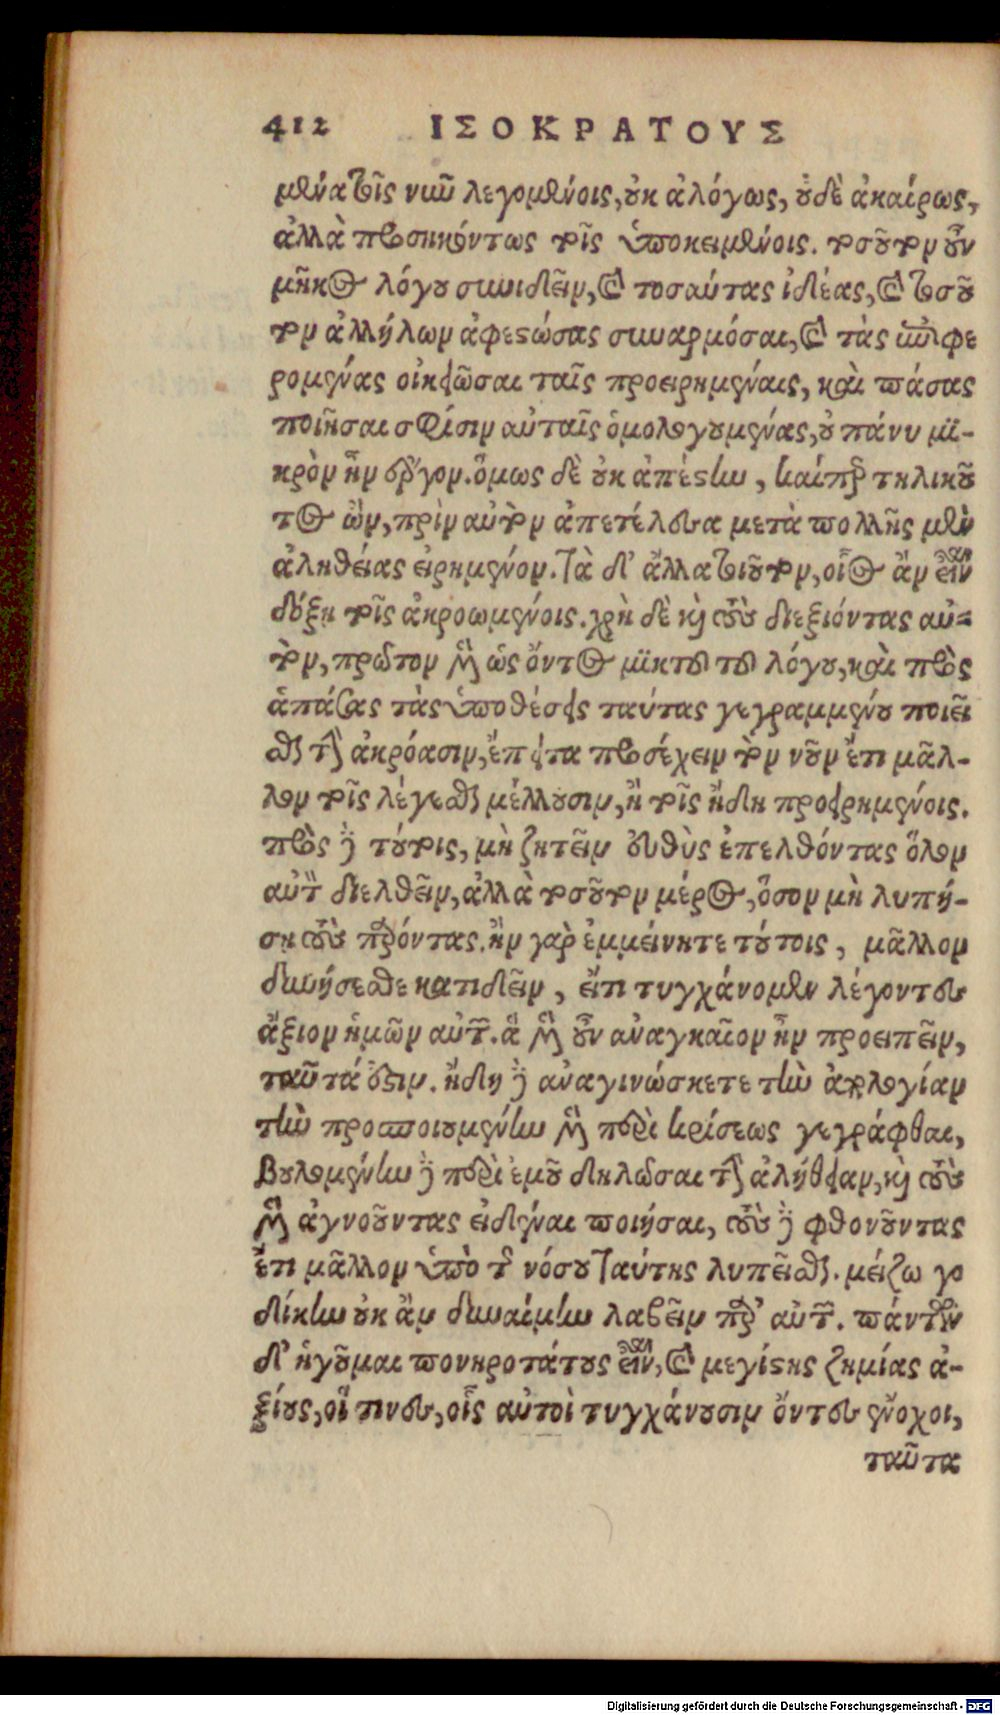 412 ΙΣΟΚΡΑΤΟΥΣ
μένα τοῖς νῦν λεγομένοις, οὐκ ἀλόγως, οὐδὲ ἀκαίρως,
ἀλλὰ προσηκόντως τοῖς ὑποκειμένοις. τοσοῦτον οὖν
μῆκος λόγου συνιδεῖν, καὶ τοσαύτας ἰδέας, καὶ τοσοῦ
τον ἀλλήλων ἀφεστώσας συναρμόσαι, καὶ τὰς ἐπιφε
ρομένας οἰκειῶσαι ταῖς προειρημέναις, καὶ πάσας
ποιῆσαι σφίσιν αὐταῖς ὁμολογουμένας, οὐ πάνυ μι-
κρὸν ἦν ἔργον. ὅμως δὲ οὐκ ἀπέστην, καίπερ τηλικοῦ
τος ὢν, πρὶν αὐτὸν ἀπετέλεσα μετὰ πολλῆς μὲν
ἀληθείας εἰρημένον. τὰ δ' ἄλλα τοιοῦτον, οἷος ἂν εἶναι
δόξῃ τοῖς ἀκροωμένοις. χρὴ δὲ καὶ τοὺς διεξιόντας αὐ-
τὸν, πρῶτον μὲν ὡς ὄντος μικτοῦ τοῦ λόγου, καὶ πρὸς
ἁπάσας τὰς ὑποθέσεις ταύτας γεγραμμένου ποιεῖ
σθαι τὴν ἀκρόασιν, ἔπειτα προσέχειν τὸν νοῦν ἔτι μᾶλ-
λον τοῖς λέγεσθαι μέλλουσιν, ἢ τοῖς ἤδη προειρημένοις.
πρὸς δὲ τούτοις, μὴ ζητεῖν εὐθὺς ἐπελθόντας ὅλον
αὐτὸν διελθεῖν, ἀλλὰ τοσοῦτον μέρος, ὅσον μὴ λυπή-
σῃ τοὺς παρόντας. ἢν γὰρ ἐμμείνητε τούτοις, μᾶλλον
δυνήσεσθε κατιδεῖν, εἴ τι τυγχάνομεν λέγοντες
ἄξιον ἡμῶν αὐτῶν. ἃ μὲν οὖν ἀναγκαῖον ἦν προειπεῖν,
ταῦτά ἐστιν. ἤδη δὲ ἀναγινώσκετε τὴν ἀπολογίαν
τὴν προσποιουμένην μὲν περὶ κρίσεως γεγράφθαι,
βουλομένην δὲ περὶ ἐμοῦ δηλῶσαι τὴν ἀλήθειαν, καὶ τοὺς
μὲν ἀγνοοῦντας εἰδέναι ποιῆσαι, τοὺς δὲ φθονοῦντας
ἔτι μᾶλλον ὑπὸ τῆς νόσου ταύτης λυπεῖσθαι. μείζω γὰρ
δίκην οὐκ ἂν δυναίμην λαβεῖν παρ' αὐτῶν. πάντων
δ' ἡγοῦμαι πονηροτάτους εἶναι, καὶ μεγίστης ζημίας ἀ-
ξίους, οἵ τινες, οἷς αὐτοὶ τυγχάνουσιν ὄντες ἔνοχοι,
ταῦτα
Digitalisierung gefördert durch die Deutsche Forschungsgemeinschaft - DFG